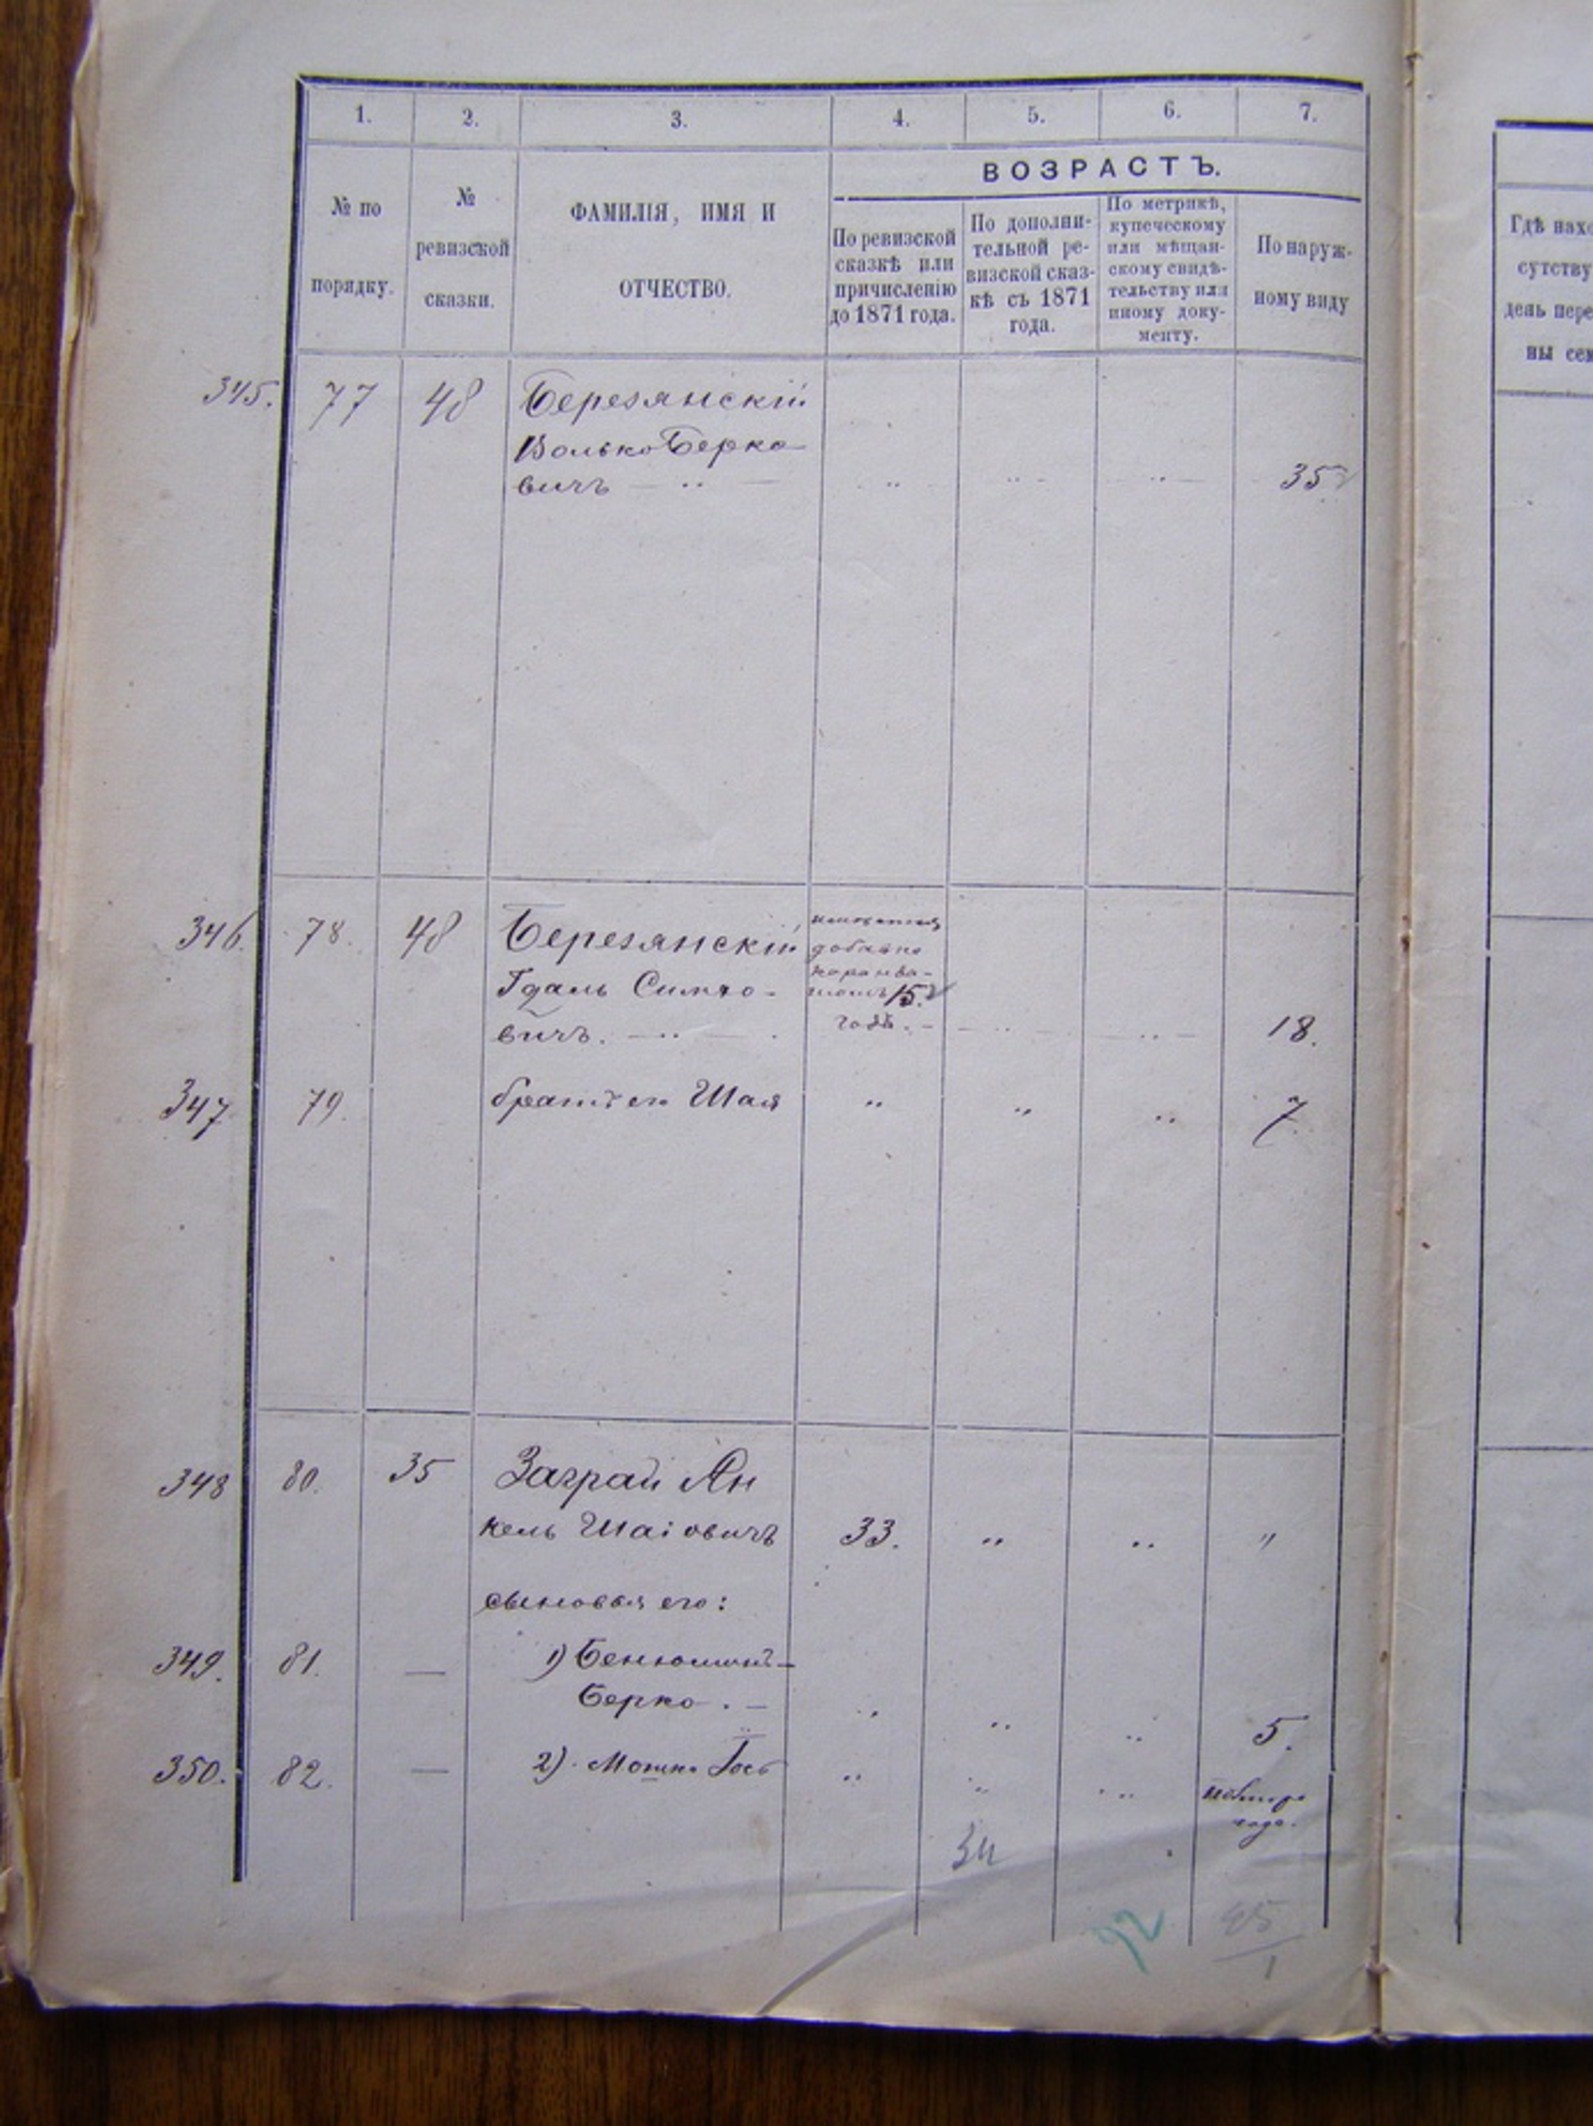 1. 2. 3. 4. 5. 6. 7.
ВОЗРАСТЪ.
№ по
порядку.
№
ревизской
сказки.
ФАМИЛІЯ, ИМЯ И
ОТЧЕСТВО.
По ревизской
сказкѣ или
причисленію
до 1871 года.
По дополни-
тельной ре-
визской сказ-
кѣ съ 1871
года.
По метрикѣ,
купеческому
или мѣщан-
скому свидѣ-
тельству или
иному доку-
менту.
По наруж-
ному виду
Гдѣ нахо
сутству
день пере
ны сем
345. 77 48 Березянскій
Волько Берко-
вичъ — „ — „ „ „ 35
346. 78. 48 Березянскій
Гдаль Симхо-
вичъ. — „ —
15.
годъ. — „ „ 18.
347 79. братъ его Шая „ „ „ 7.
348 80. 35 Заграй Ян
кель Шаіовичъ 33. „ „ „
сыновья его:
349. 81. — 1) Бенюминъ-
Берко. — „ „ „ 5.
350. 82. — 2) Мошко Іось „ „ „
года.
34
92
45
1